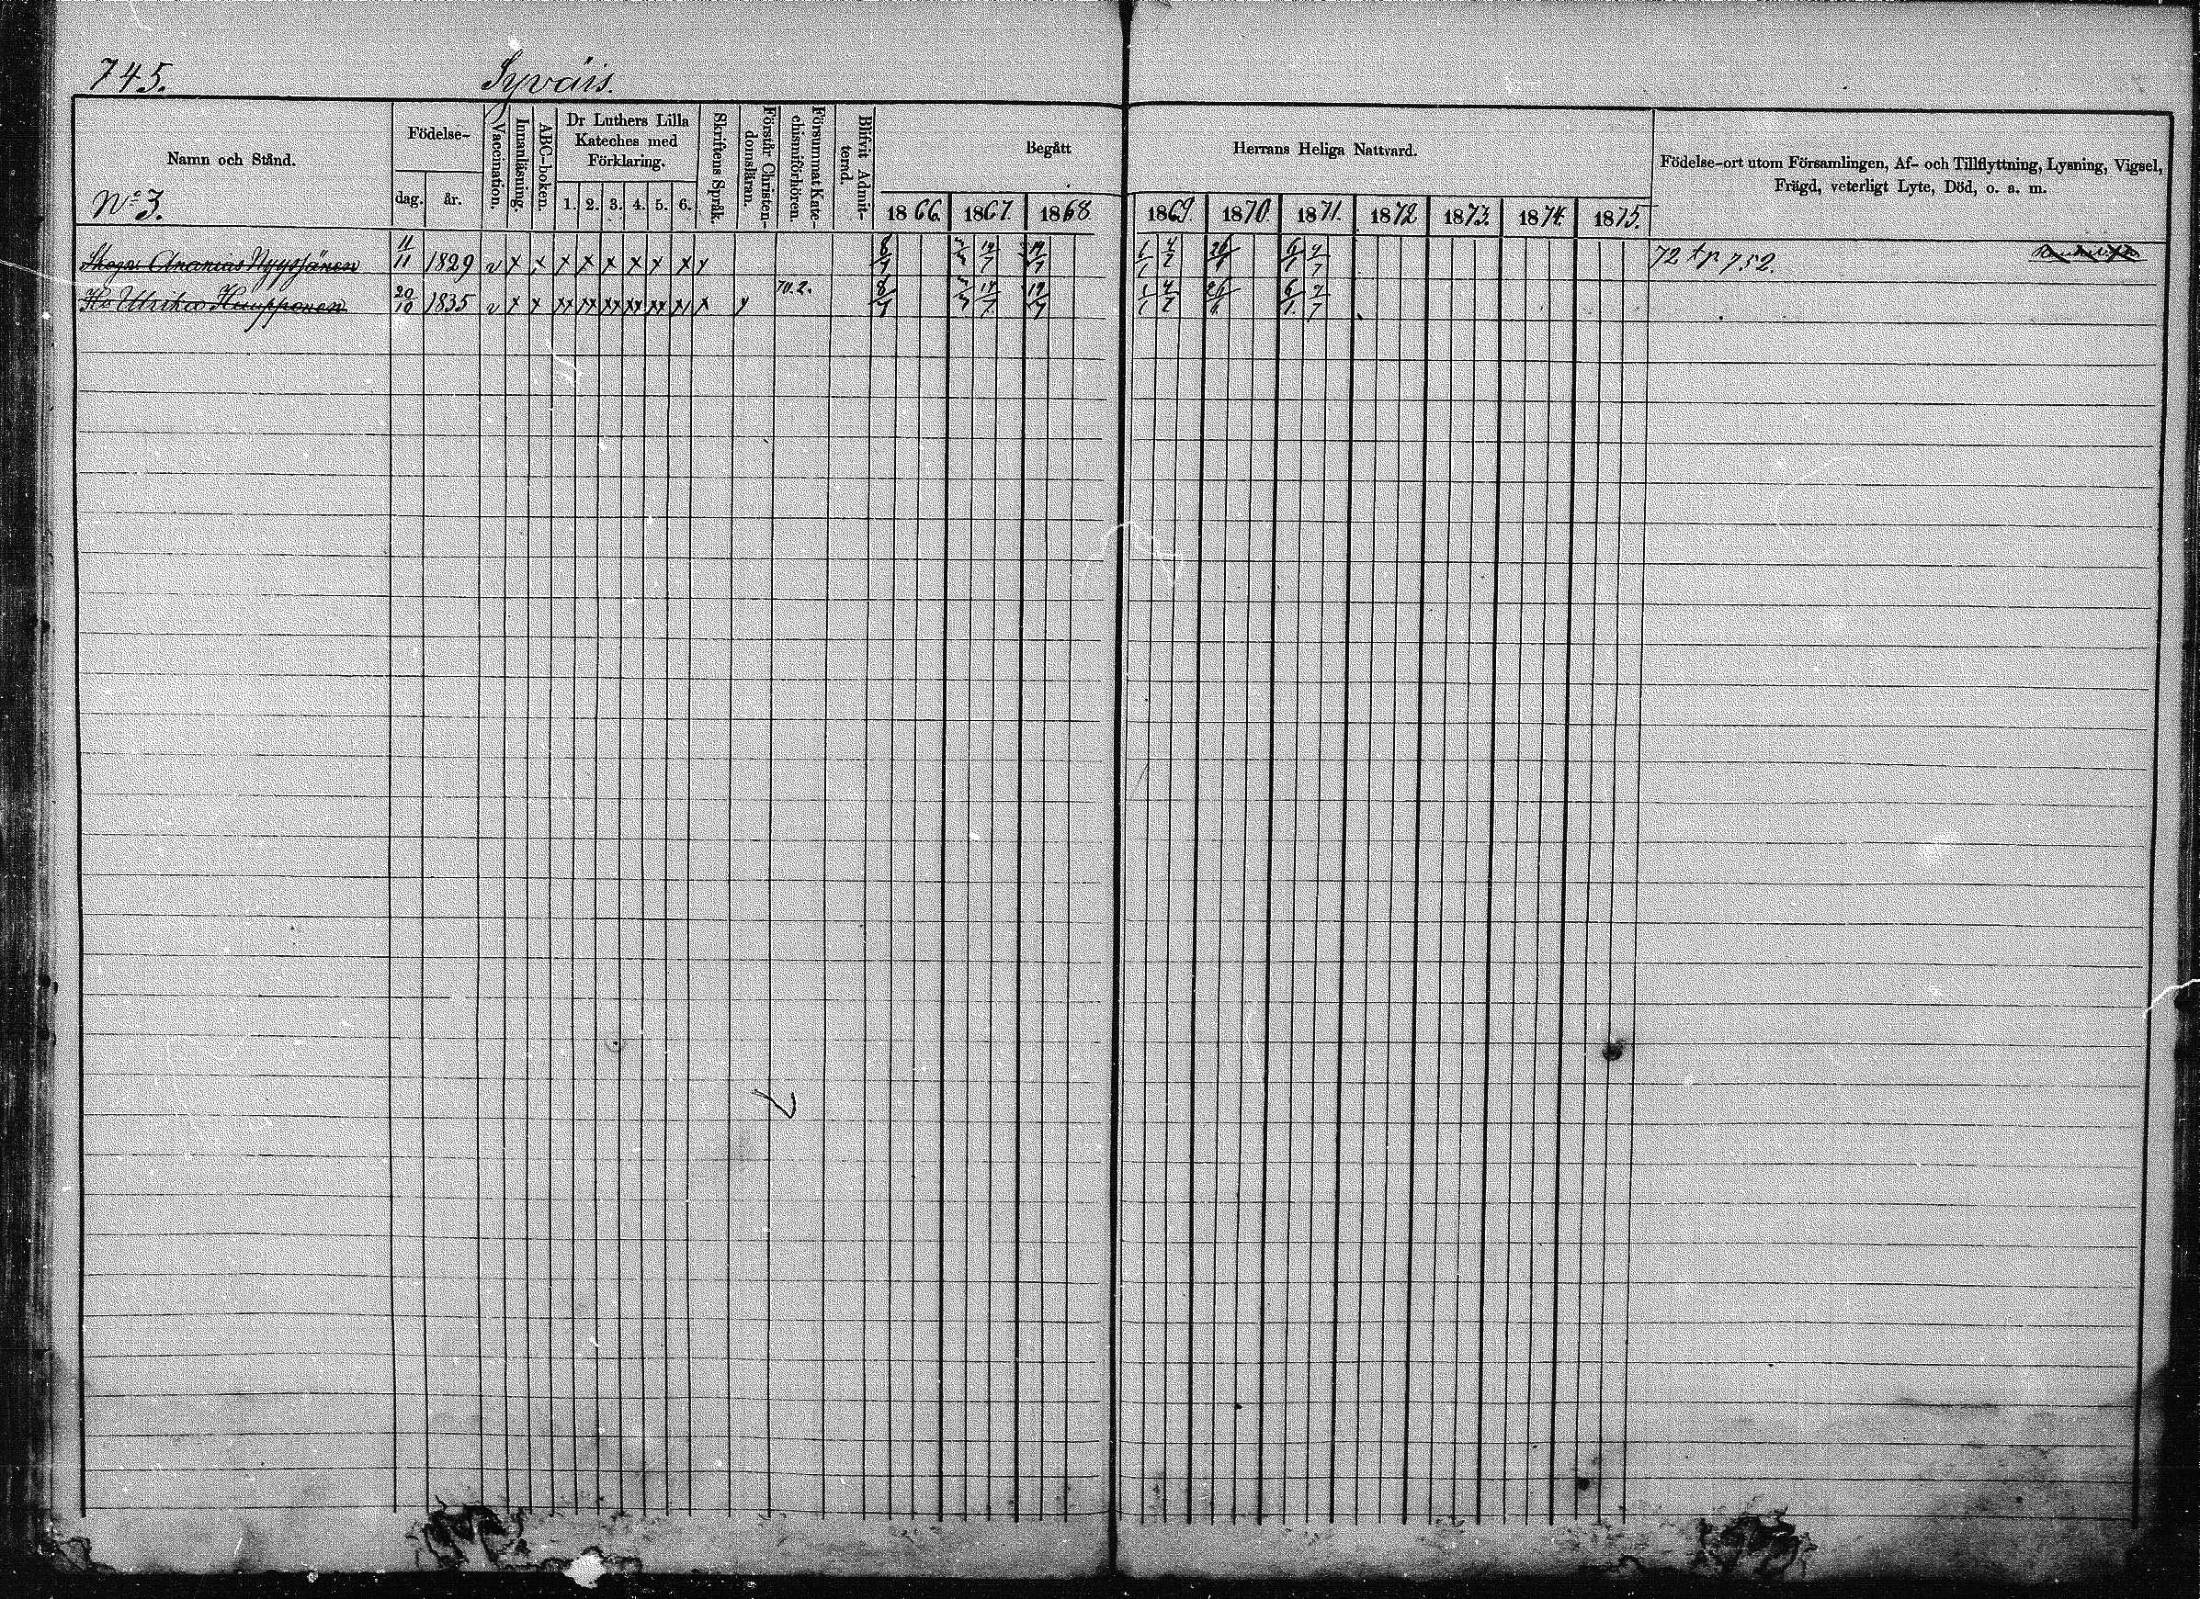 745. Syväis.
Namn och Stånd.
No 3.
Födelse-
dag. år.
Vaccination.
Innanläsning.
ABC-boken.
Dr Luthers Lilla
Kateches med
Förklaring.
1. 2. 3. 4. 5. 6.
Skriftens Språk.
Förstår Christen-
domsläran.
Försummat Kate-
chismiförhören.
Blifvit Admit-
terad.
Begått Herrans Heliga Nattvard.
1866. 1867. 1868 1869. 1870 1871. 1872 1873. 1874. 1875.
Födelse-ort utom Församlingen, Af- och Tillflyttning, Lysning, Vigsel,
Frägd, veterligt Lyte, Död, o. s. m.
Ananias Nyyssönen 11/11 1829 v x x x x x x x x x 8/7 19/7 1/1 4/7 6/1 2/7 72 tp 752.
Hu Ulrika Huupponen 20/10 1835 v x x xx xx xx xx xx x x x 70.2. 8/7 19/7 1/1 4/7 6/1 2/7